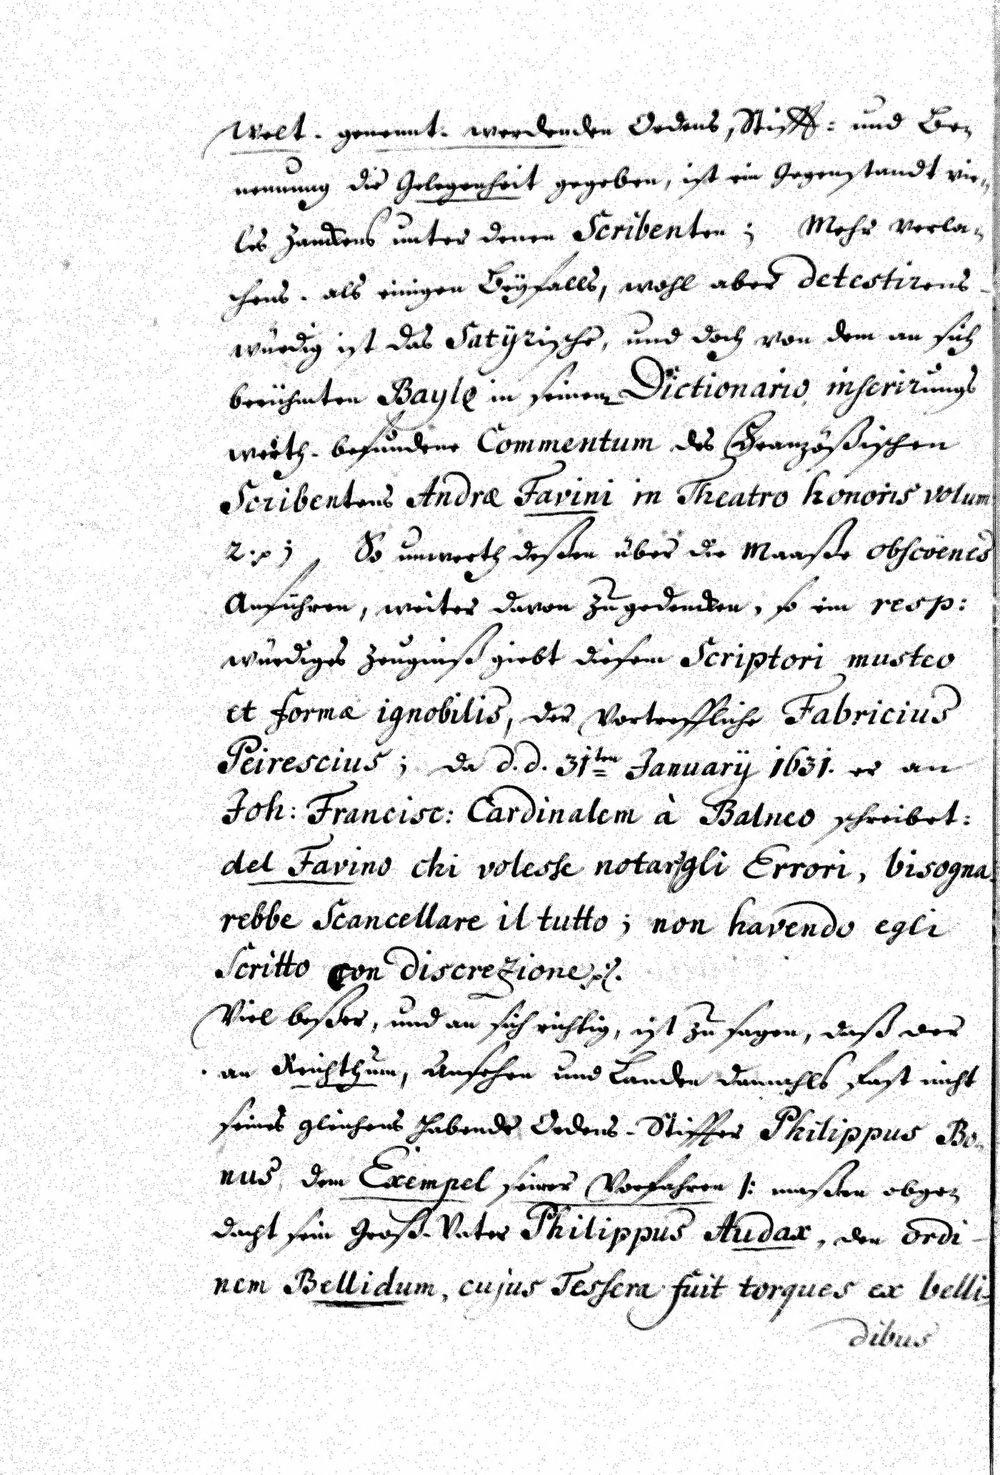 Welt- genennt- werdenden Ordens, Stifft: und Be-
nennung die Gelegenheit gegeben, ist ein Gegenstandt vie-
les Zanckens unter denen Scribenten; Mehr verla-
chens- als einigen Beÿfalls, wohl aber detestirens-
würdig ist das Satÿrische, und doch von dem an sich
berühmten Bayle in seinem Dictionario, inserirungs
werth- befundene Commentum des Französischen
Scribentens Andræ Favini in Theatro honoris volum
2: So unwerth deßen über die Maaße obscoenes
Anführen, weiter davon zu gedencken, so ein resp:
würdiges Zeugniß giebt diesem Scriptori musteo
et formæ ignobilis, der Vortreffliche Fabricius
Peirescius; da d.d. 31ten Januarÿ 1631. er an
Joh: Francisc: Cardinalem à Balneo schreibet:
del Favino chi volesse notar gli Errori, bisogna-
rebbe Scancellare il tutto; non havendo egli
Scritto con discrezione
Viel beßer, und an sich richtig, ist zu sagen, daß der
an Reichthum, Ansehen und Landen damahls fast nicht
seines gleichens habende Ordens-Stiffter Philippus Bo-
nus, dem Exempel seiner Vorfahren /: maßen obge-
dacht sein Groß-Vater Philippus Audax, den ordi-
nem Bellidum, cujus Tessera fuit torques ex belli-
dibus